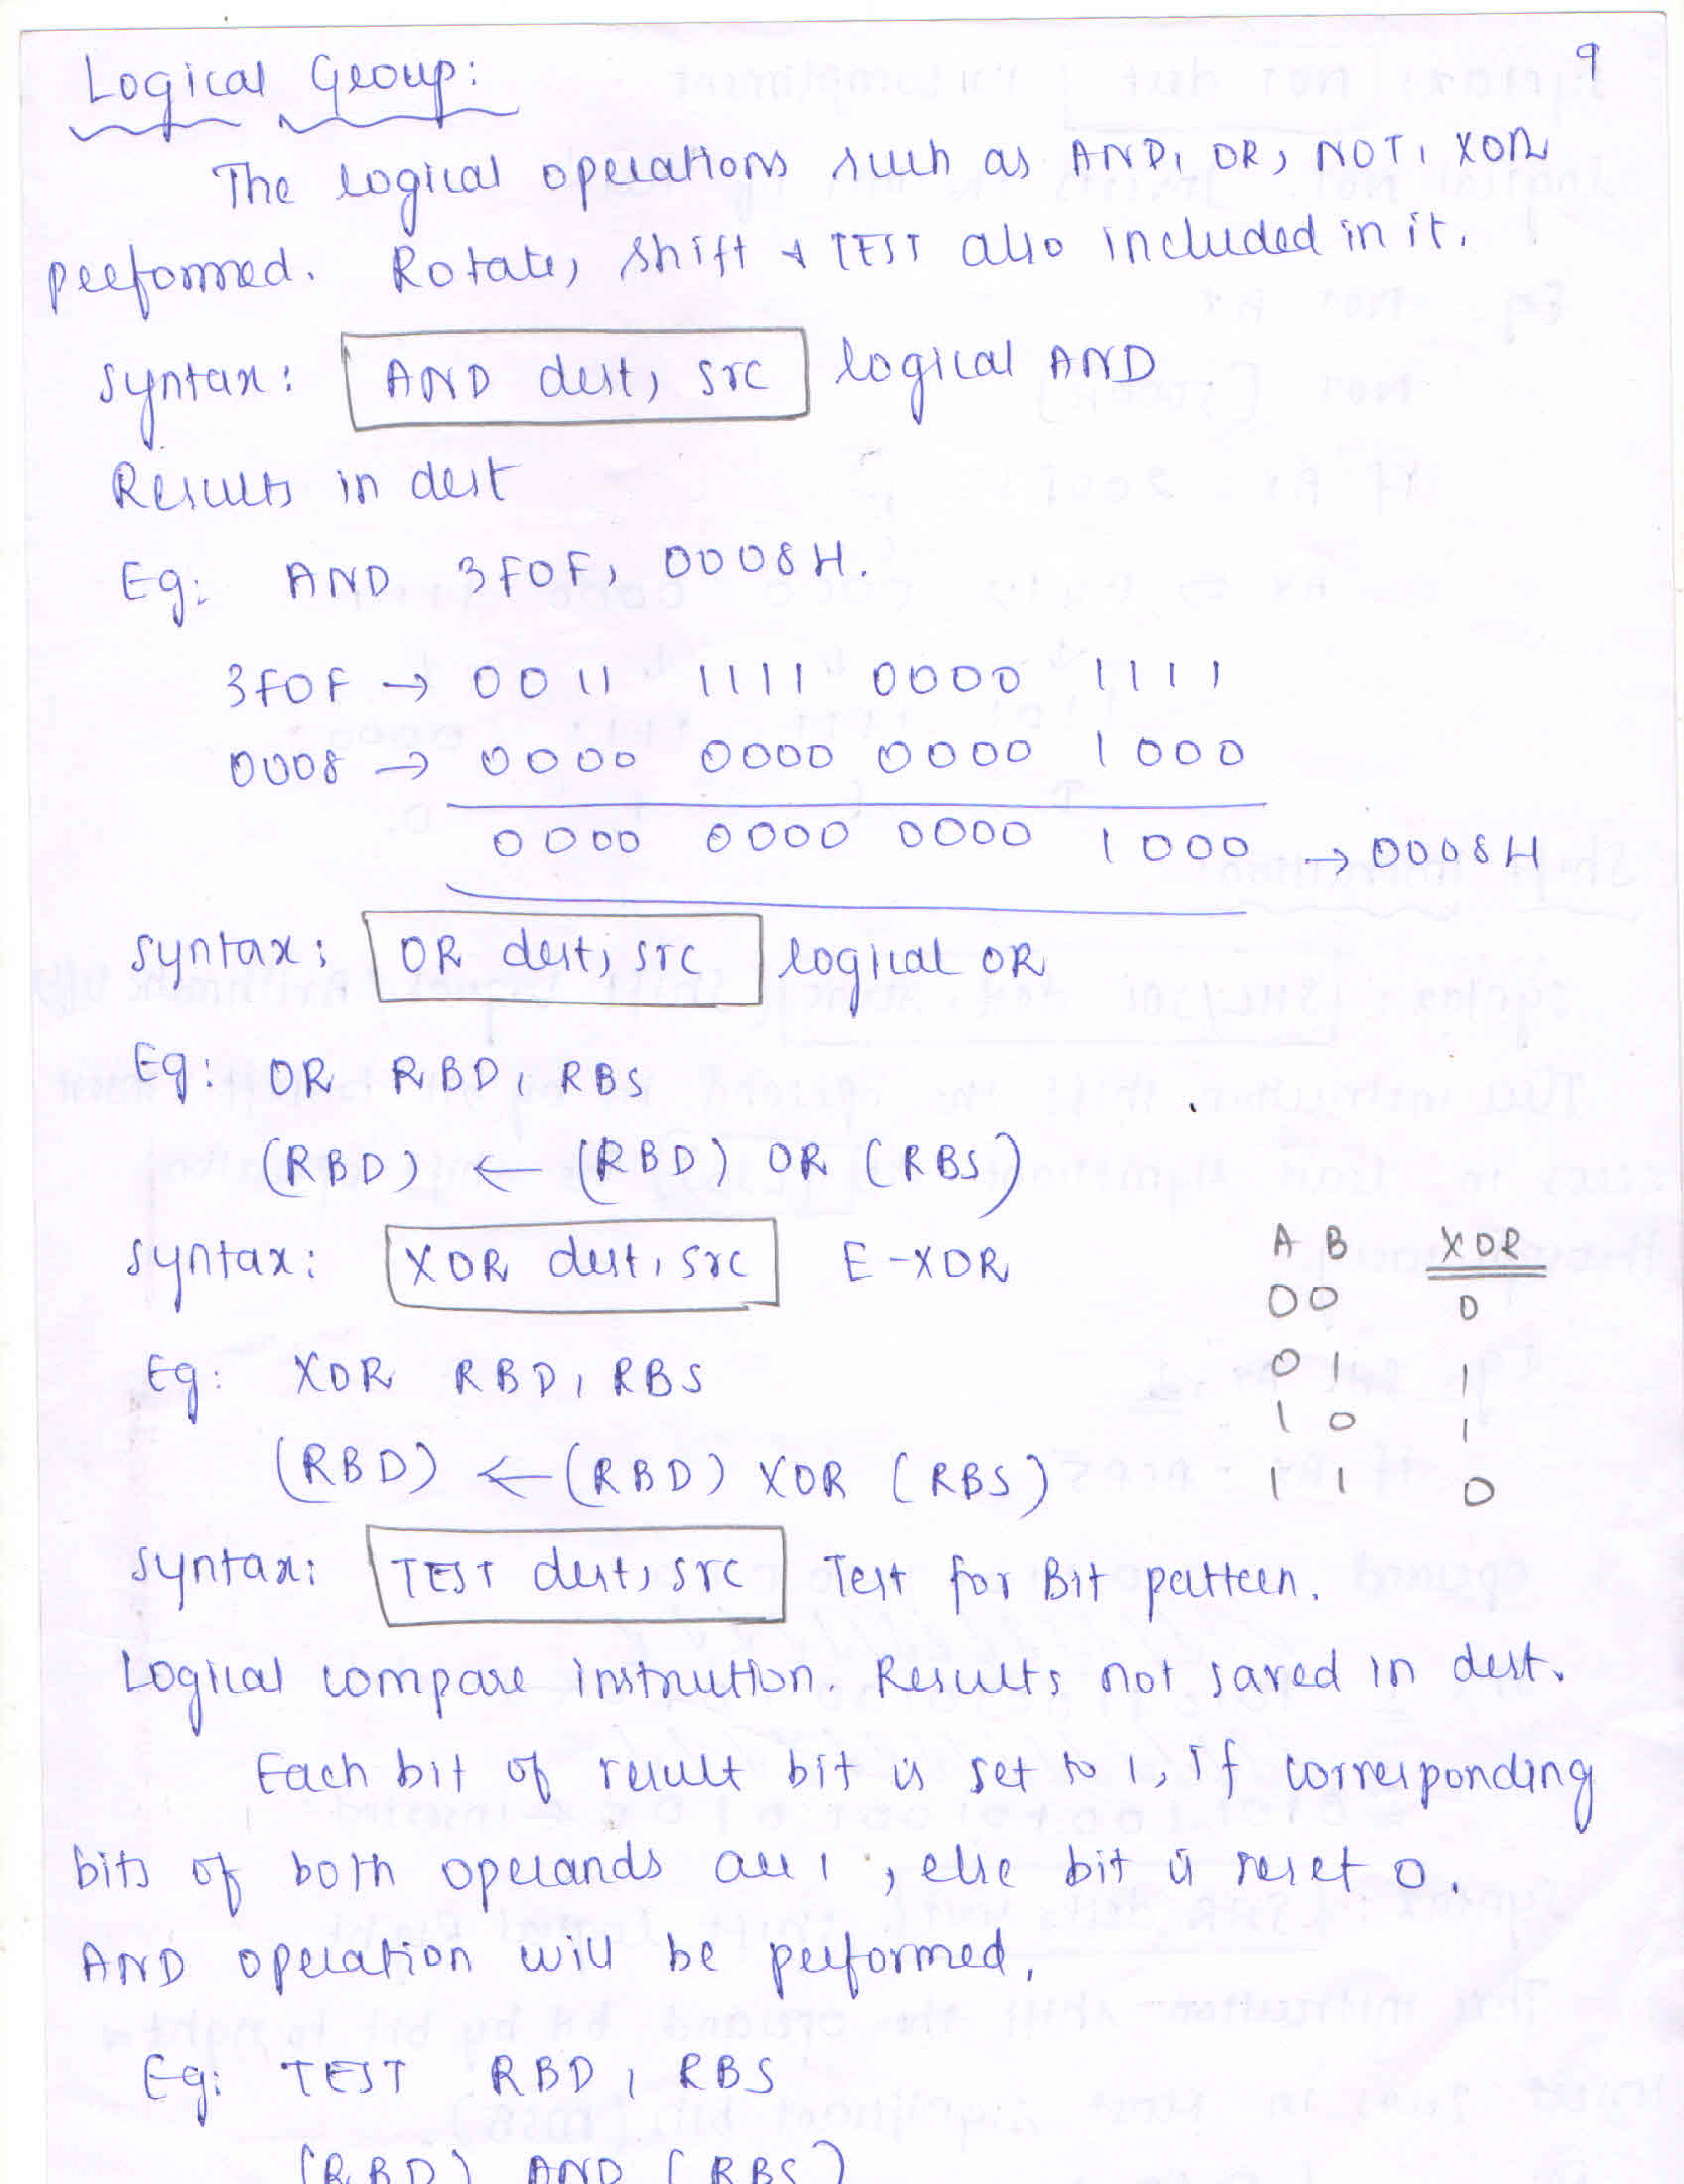 9
Logical Group:
The logical operations such as AND, OR, NOT, XOR
performed. Rotate, shift & TEST also included in it.
Syntax: AND dest, src logical AND
Results in dest
Eg: AND 3F0F, 0008H.
3F0F → 0011 1111 0000 1111
0008 → 0000 0000 0000 1000
0000 0000 0000 1000 → 0008H
Syntax: OR dest, src logical OR
Eg: OR RBD, RBS
(RBD) ← (RBD) OR (RBS)
Syntax: XOR dest, src E-XOR
A B XOR
0 0 0
0 1 1
1 0 1
1 1 0
Eg: XOR RBD, RBS
(RBD) ← (RBD) XOR (RBS)
Syntax: TEST dest, src Test for Bit pattern.
Logical compare instrution. Results not saved in dest.
Each bit of result bit is set to 1, If corresponding
bits of both operands are 1, else bit is reset 0.
AND operation will be performed,
Eg: TEST RBD, RBS
(RBD) AND (RBS)